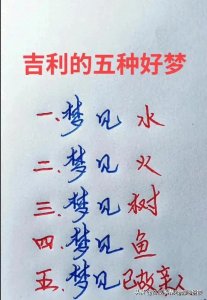 吉利的五种好梦
一、梦见水
二、梦见火
三、梦见树
四、梦见鱼
五、梦见已故亲人